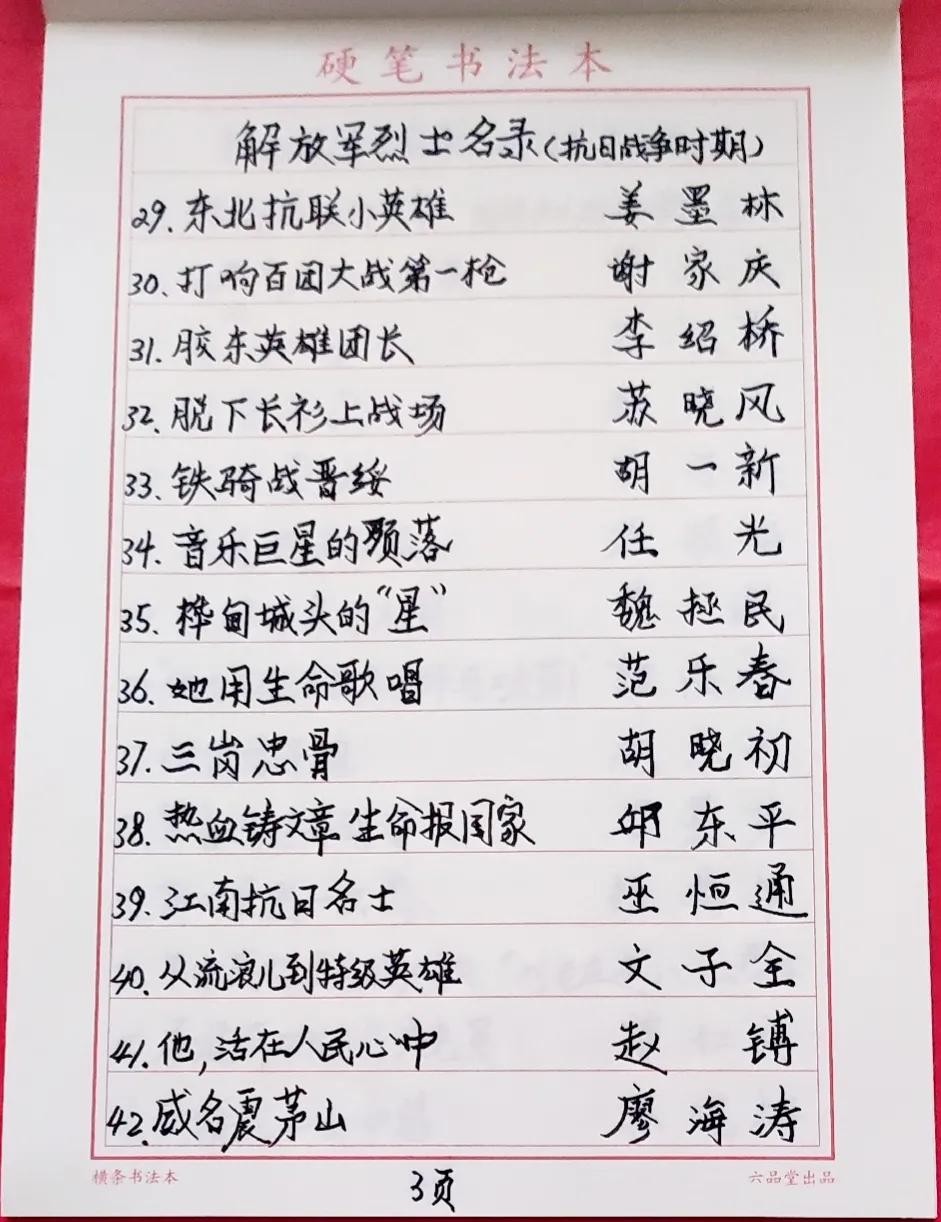 硬笔书法本
解放军烈士名录(抗日战争时期)
29.东北抗联小英雄 姜墨林
30、打响百团大战第一枪 谢家庆
31.胶东英雄团长 李绍桥
32、脱下长衫上战场 苏晓风
33.铁骑战晋绥 胡一新
34.音乐巨星的殒落 任光
35.桦甸城头的“星” 魏拯民
36、她用生命歌唱 范乐春
37.三岗忠骨 胡晓初
38.热血铸文章生命报国家 邱东平
39.江南抗日名士 巫恒通
40.从流浪儿到特级英雄 文子全
41.他,活在人民心中 赵镈
42.威名震茅山 廖海涛
横条书法本 3页 六品堂出品